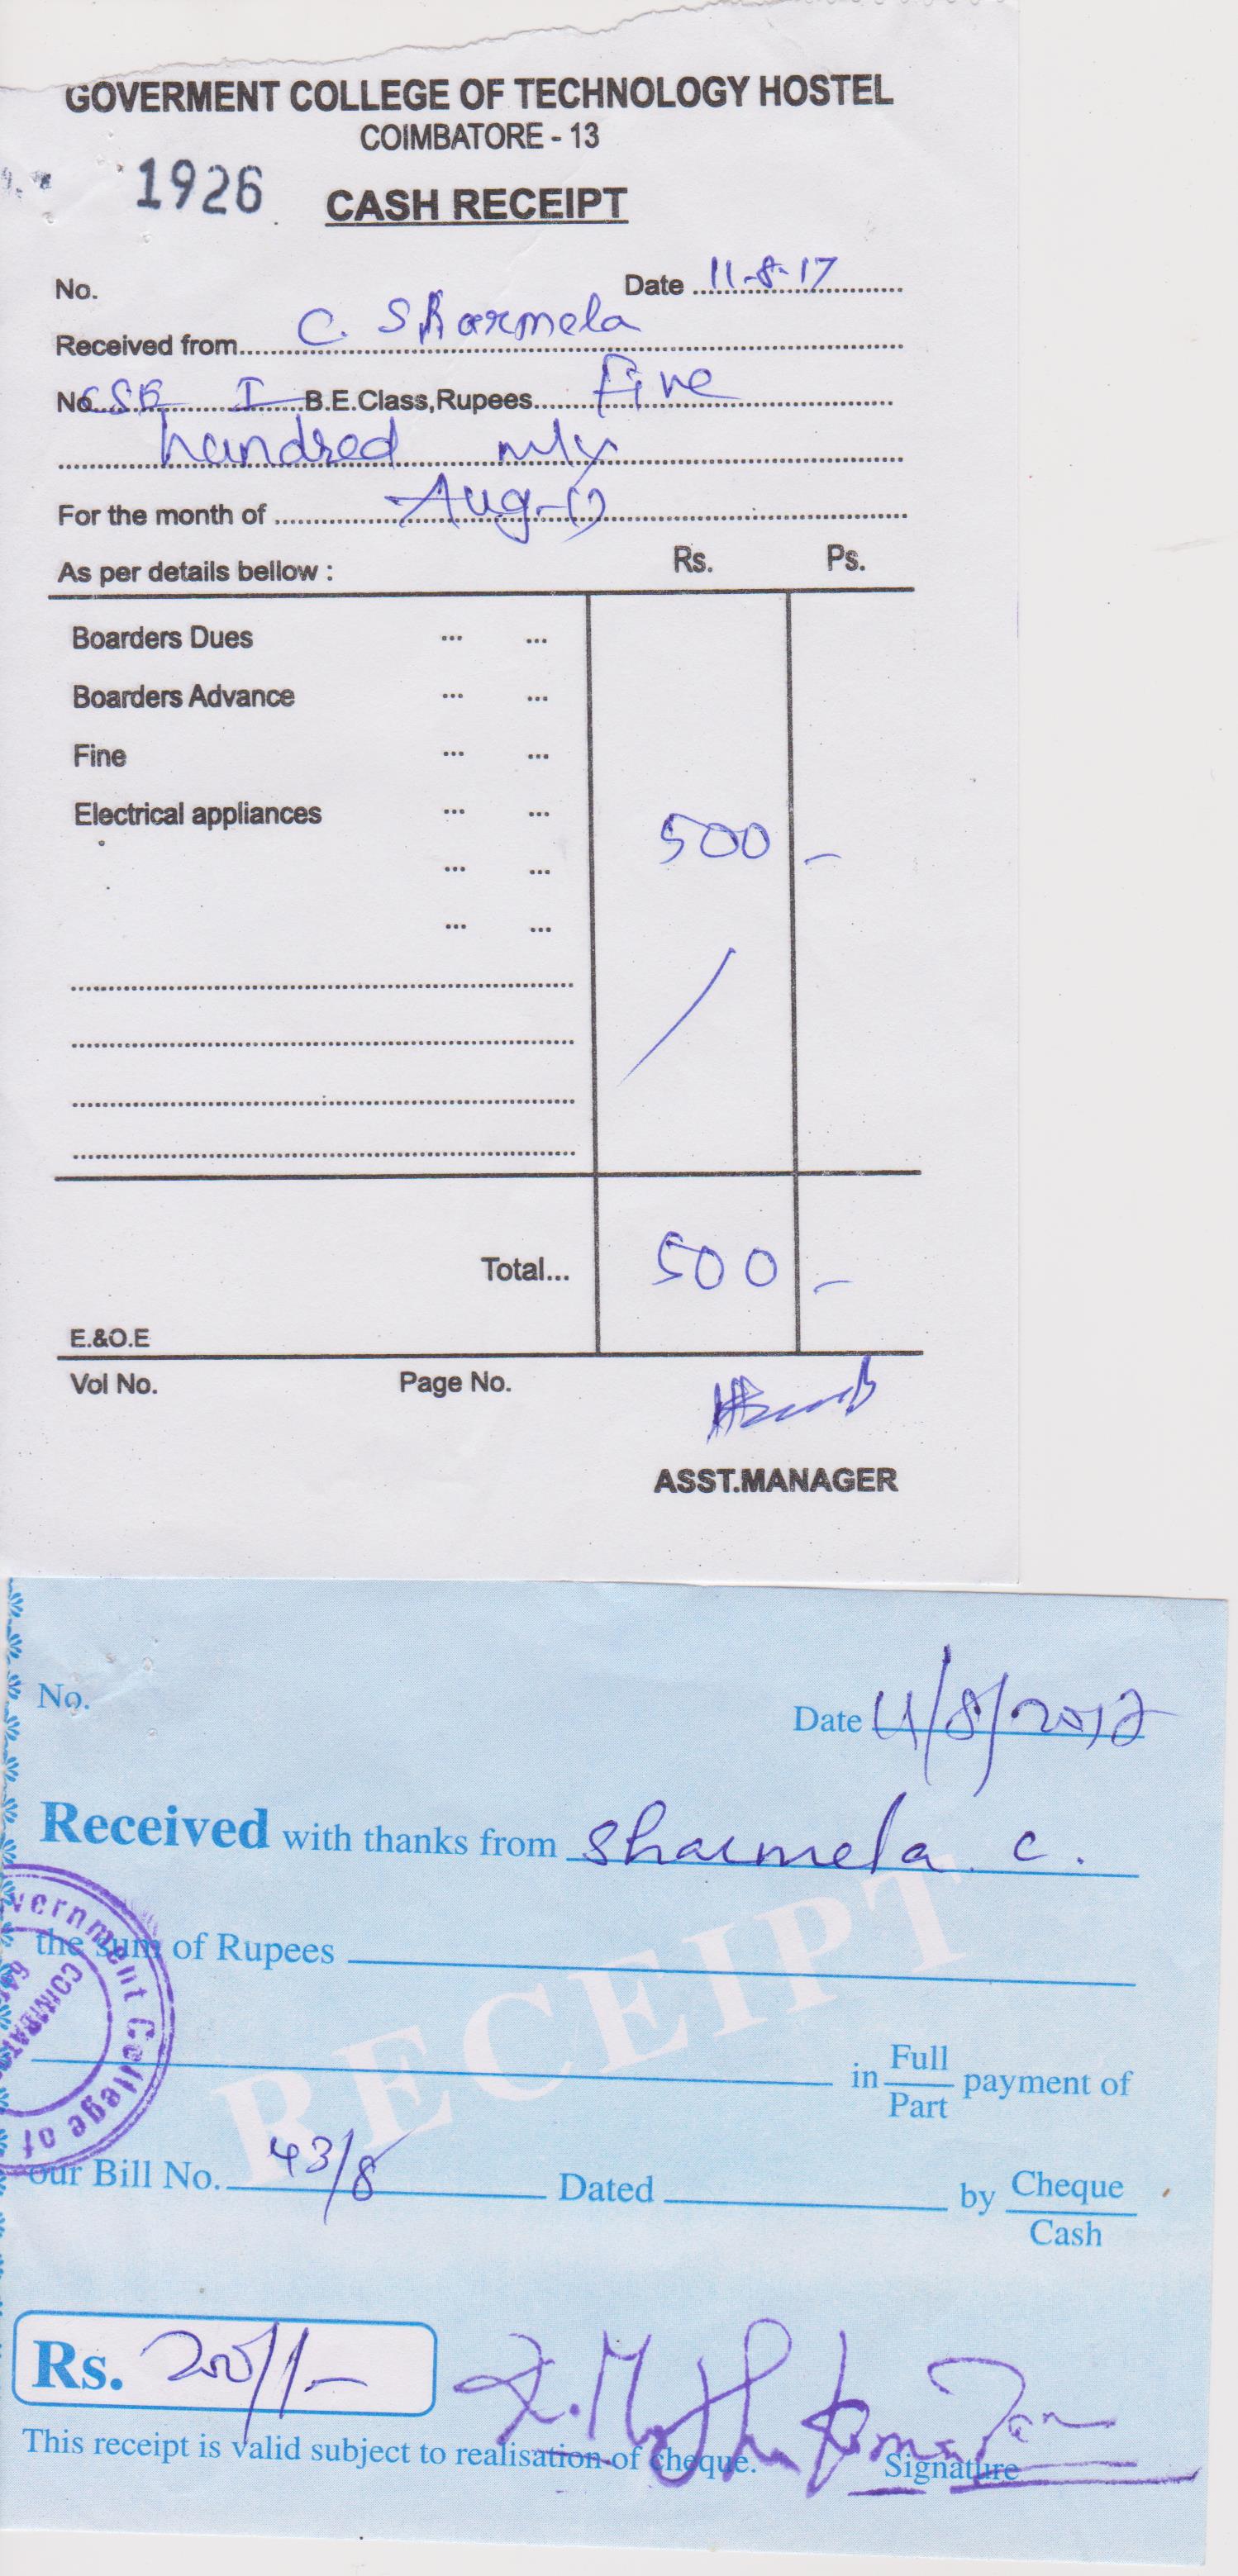 GOVERMENT COLLEGE OF TECHNOLOGY HOSTEL
COIMBATORE - 13
1926 CASH RECEIPT
No. Date 11-8-17
Received from C. Sharmela
No. CSE I B.E.Class,Rupees Five
hundred only
For the month of Aug-17
As per details bellow : Rs. Ps.
Boarders Dues ... ...
Boarders Advance ... ...
Fine ... ...
Electrical appliances ... ...
... ... 500 -
... ...
Total... 500 -
E.&O.E
Vol No. Page No.
ASST.MANAGER
No. Date 11/8/2017
Received with thanks from Sharmela c.
the sum of Rupees
in Full payment of
Part
our Bill No. 43/8 Dated by Cheque
Cash
Rs.
This receipt is valid subject to realisation of cheque. Signature
vernment College of
COIMBAT
RECEIPT